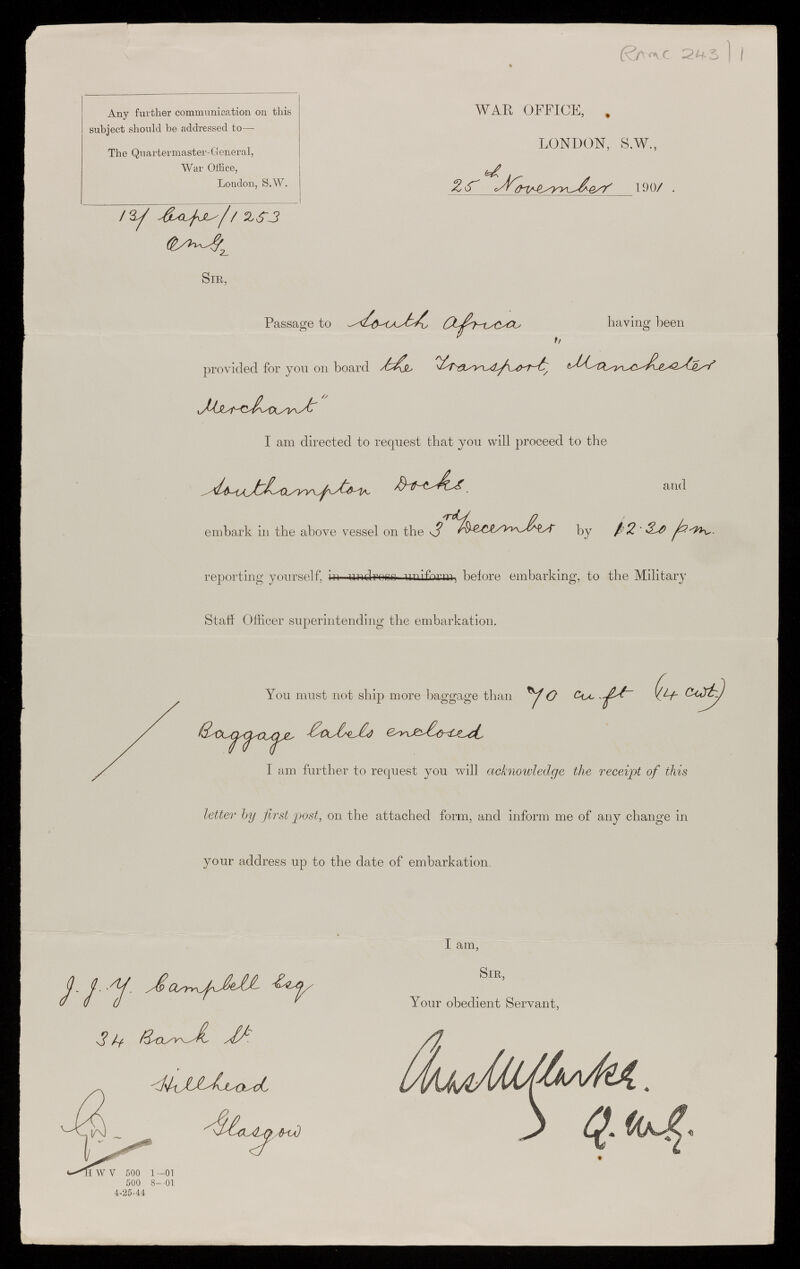 RAMC 243/1
Any further communication on this
subject should be addressed to—
The Quartermaster-General,
War Office,
London, S.W.
WAR OFFICE,
LONDON, S.W.,
25th November 1901.
13/Cape/1253
QMG2
SIR,
Passage to South Africa having been
provided for you on board the Transport, "Manchester
Merchant"
I am directed to request that you will proceed to the
Southampton Docks. and
embark in the above vessel on the 3rd December by 12.30 pm.
reporting yourself, in undress uniform, before embarking, to the Military
Staff Officer superintending the embarkation.
You must not ship more baggage than 70 cu. ft (14 cwt)
Baggage labels enclosed
I am further to request you will acknowledge the receipt of this
letter by first post, on the attached form, and inform me of any change in
your address up to the date of embarkation.
I am,
SIR,
Your obedient Servant,
Chas M Clarke.
Q.M.G.
J. J. Y. Campbell Esq
34 Bank St.
Hillhead
Glasgow
H W V 500 1—01
500 8—01
4-25-44